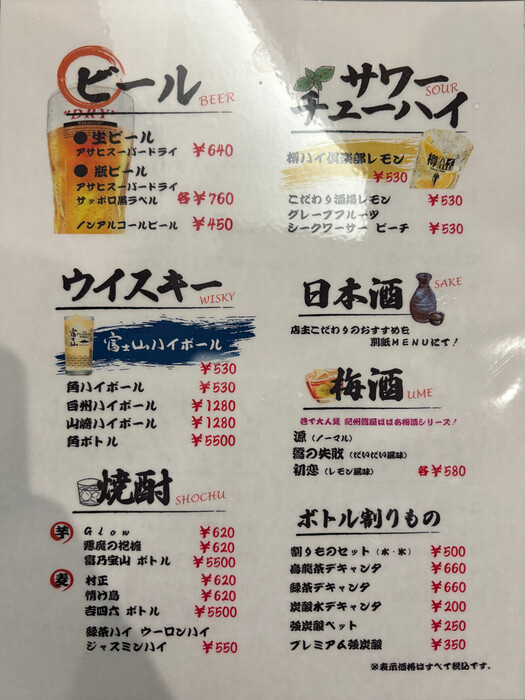 ビール
BEER
DRY
●生ビール
アサヒスーパードライ ¥640
●瓶ビール
アサヒスーパードライ
サッポロ黒ラベル 各¥760
ノンアルコールビール ¥450
サワー
SOUR
チューハイ
樽ハイ倶楽部レモン
¥530
こだわり酒場レモン ¥530
グレープフルーツ
シークワーサー ピーチ ¥530
ウイスキー
WISKY
富士山ハイボール
¥530
角ハイボール ¥530
白州ハイボール ¥1280
山崎ハイボール ¥1280
角ボトル ¥5500
日本酒
SAKE
店主こだわりのおすすめを
別紙MENUにて!
梅酒
UME
巷で大人気 紀州鶯屋ばばあ梅酒シリーズ!
源(ノーマル)
鶯の失敗(だいだい風味)
初恋(レモン風味) 各¥580
焼酎
SHOCHU
芋
Glow ¥620
悪魔の抱擁 ¥620
富乃宝山 ボトル ¥5500
麦
村正 ¥620
情け島 ¥620
吉四六 ボトル ¥5500
緑茶ハイ ウーロンハイ
ジャスミンハイ ¥550
ボトル割りもの
割りものセット(水・氷) ¥500
烏龍茶デキャンタ ¥660
緑茶デキャンタ ¥660
炭酸水デキャンタ ¥200
強炭酸ペット ¥250
プレミアム強炭酸 ¥350
※表示価格はすべて税込です。